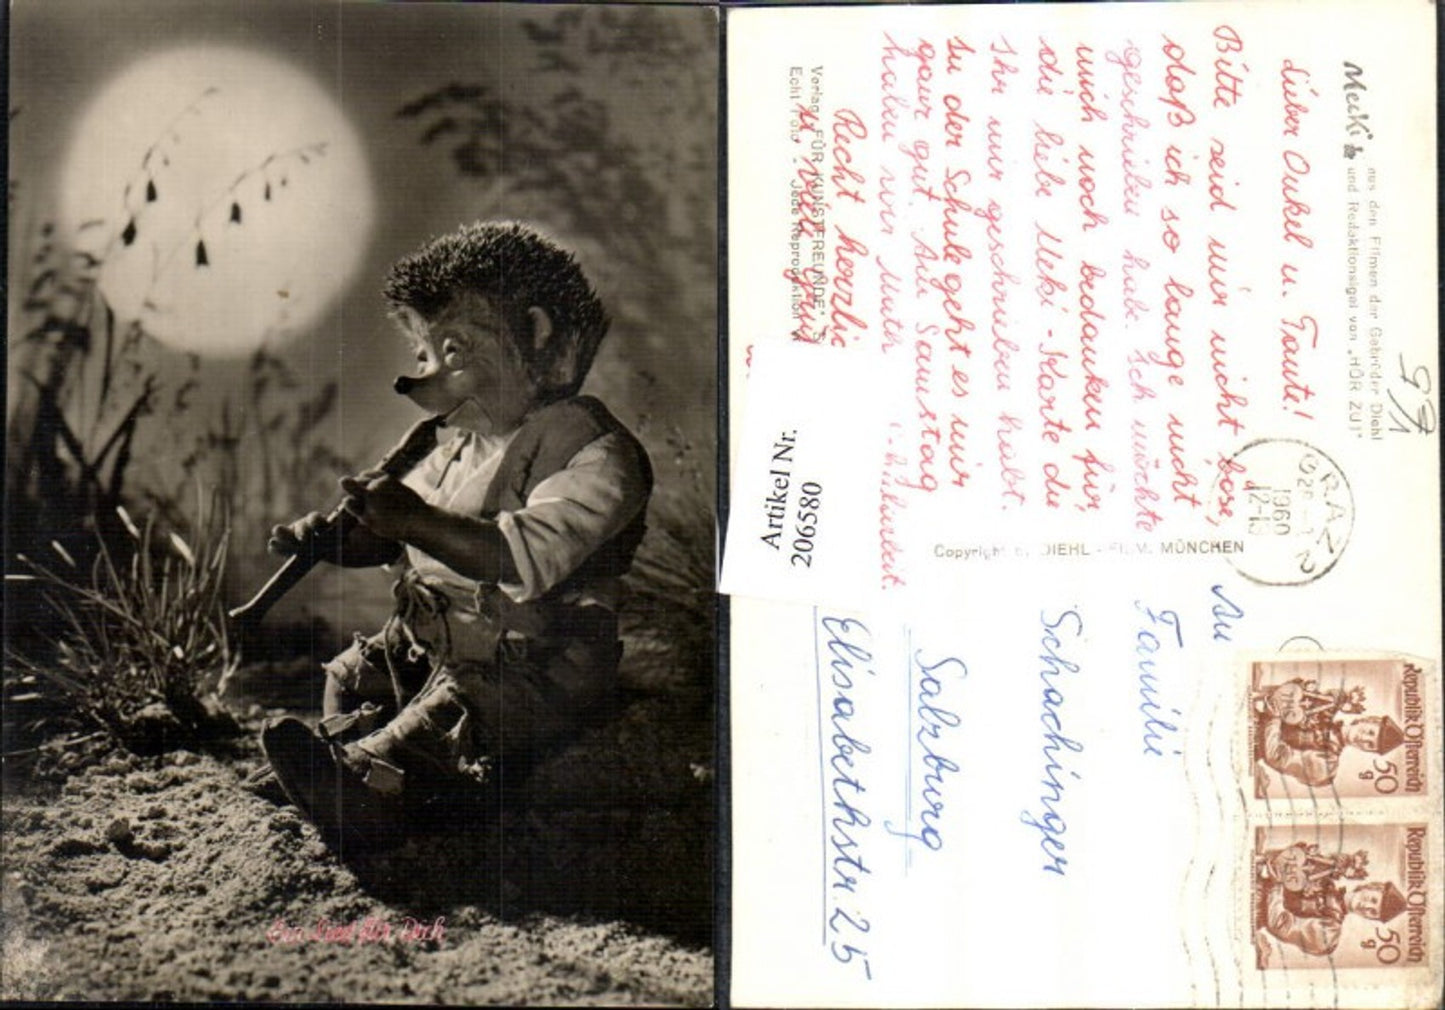 Ein Lied für Dich
Mecki
aus den Filmen der Gebrüder Diehl
und Redaktionsigel von „HÖR ZU!"
971
Lieber Onkel u. Tante!
Bitte seid mir nicht böse,
daß ich so lange nicht
geschrieben hab. Ich möchte
mich noch bedanken für,
die liebe Meki-Karte die
Ihr mir geschrieben habt.
In der Schule geht es mir
ganz gut. Am Samstag
haben wir Math
Recht herzli
u. viele
Verlag „FÜR KUNSTFREUNDE"
Echt Foto - Jede Reproduktion
Artikel Nr.
206580
Copyright by DIEHL - FILM, MÜNCHEN
GRAZ 2
1960
12-13
An
Familie
Schachinger
Salzburg
Elisabethstr. 25
Republik Österreich
50 g
Republik Österreich
50 g